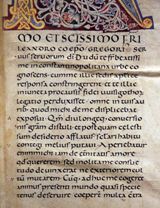 MO ET SCISSIMO FRI
LEANDRO COEPO GREGORIUS SER
uus seruorum di Dudu te fr beatissi
me in constantinopolitana urbe co
gnoscens cumme illic sedis aptlice
responsa constringerent et te illuc
iniuncta procausis fidei uuisigothoru
legatio perduxisset omne intuis auri
bus quod mihi deme displicebat
exposui Qm diu longeq conuersio
nis gratiam distuli et postquam cçlesti
sum desiderio afflatus seculari habitu
contegi melius putaui Aperiebatur
enim mihi iam de çternitatis amore
quid quererem sed inolita me consue
tudo deuinxerat ne exteriorem cultu
mutarem Cumq adhuc me cogeret
animus presenti mundo quasi specie
tenus deseruire ceperunt multa